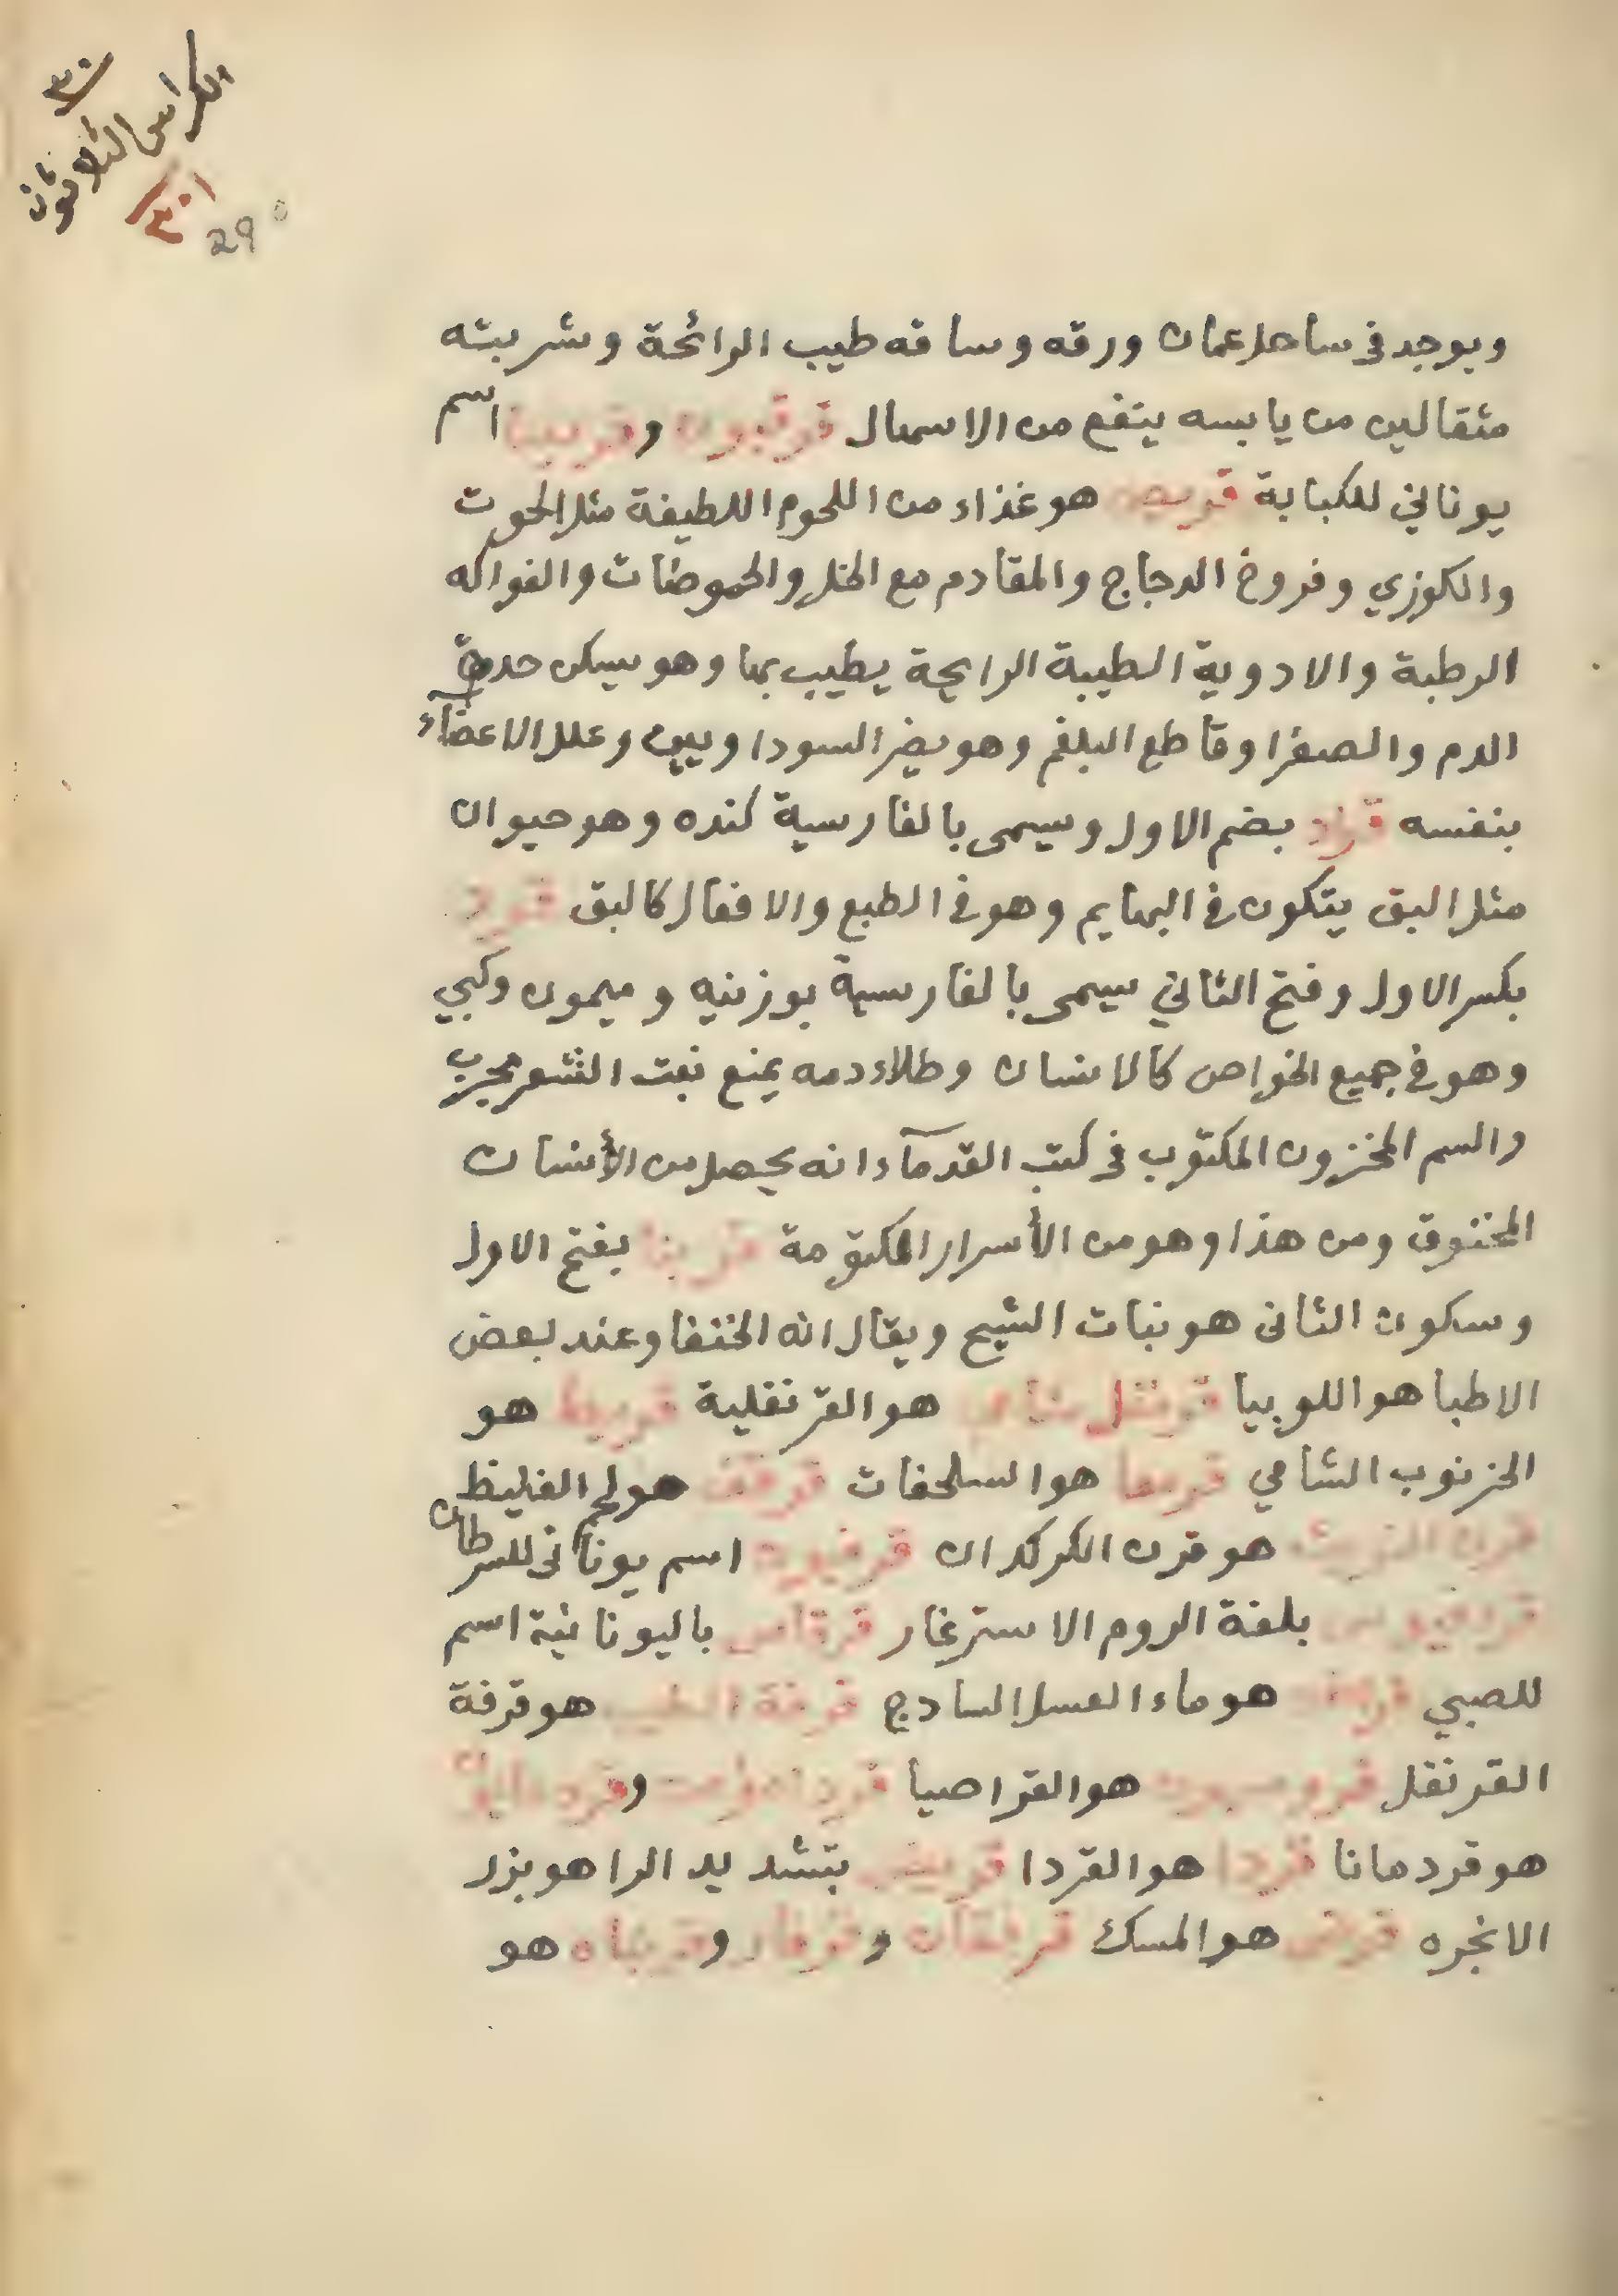 ٣٠
الكراس الثلاثون
٣٠١
290
ويوجد في ساحل عمان ورقه وساقه طيب الرائحة وشربته
مثقالين من يابسه ينفع من الاسهال قرقيون و اسم
يوناني للكبابة قريص هو غذاء من اللحوم اللطيفة مثل الحوت
والكوزي وفروخ الدجاج والمقادم مع الخل والحموضات والفواكه
الرطبة والادوية الطيبة الرايحة يطيب بها وهو يسكن حدة
الدم والصفرا وقاطع البلغم وهو يضر السوداويين وعلل الاعضآء
بنفسه قراد بضم الاول ويسمى بالفارسية كنده وهو حيوان
مثل البق يتكون في البهايم وهو في الطبع والافعال كالبق قرد
بكسر الاول وفتح الثاني يسمى بالفارسية بوزنيه وميمون وكبي
وهو في جميع الخواص كالانسان وطلاء دمه يمنع نبت الشعر مجرب
والسم المخزون المكتوب في كتب القدمآء انه يحصل من الأنسان
المخنوق ومن هذا وهو من الأسرار المكتومة بفتح الاول
وسكون الثانى هو نبات الشيح ويقال انه الخنفا وعند بعض
الاطبا هو اللوبيا قرنفل شامي هو القرنفلية قريطا هو
الخزنوب الشامي هو السلحفات قرقف هو لحم الغليظ
هو قرن الكركدان اسم يونانى للسرطان
بلغة الروم الاسترغار قرقاس باليونانية اسم
للصبي هو ماء العسل السادج قرفة الطيب هو قرفة
القرنفل هو القراصيا و
هو قردمانا قردا هو القردا قريض بتشديد الرا هو بزر
الانجره هو المسك و و هو